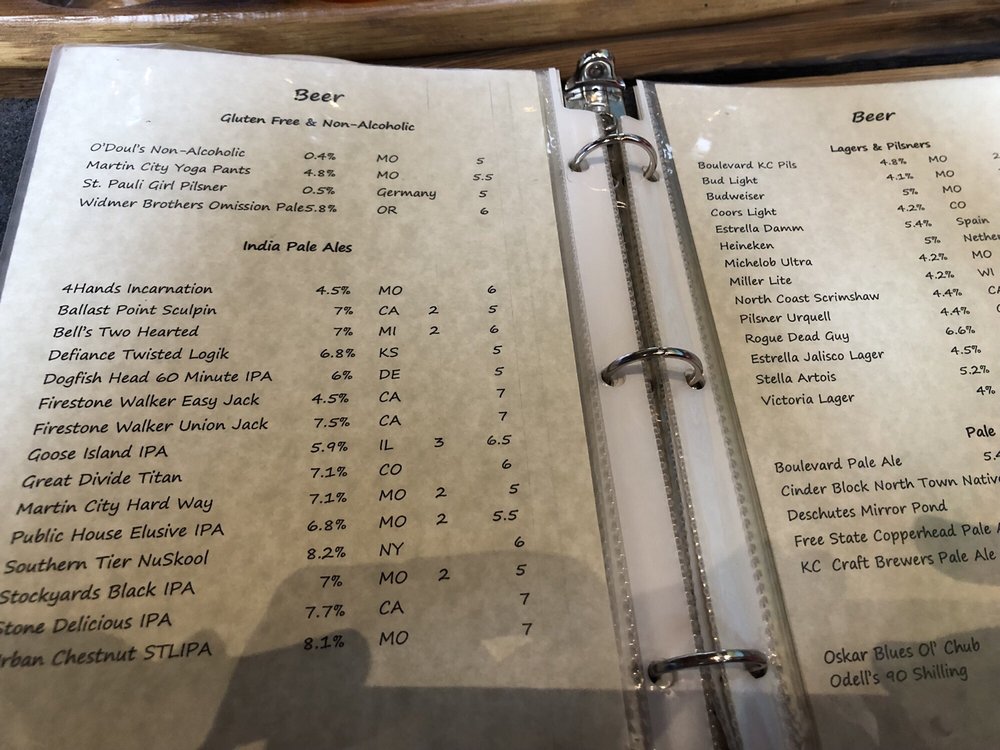 Beer
Gluten Free & Non-Alcoholic
O'Doul's Non-Alcoholic 0.4% MO 5
Martin City Yoga Pants 4.8% MO 5.5
St. Pauli Girl Pilsner 0.5% Germany 5
Widmer Brothers Omission Pale 5.8% OR 6
India Pale Ales
4Hands Incarnation 4.5% MO 6
Ballast Point Sculpin 7% CA 2 5
Bell's Two Hearted 7% MI 2 6
Defiance Twisted Logik 6.8% KS 5
Dogfish Head 60 Minute IPA 6% DE 5
Firestone Walker Easy Jack 4.5% CA 7
Firestone Walker Union Jack 7.5% CA 7
Goose Island IPA 5.9% IL 3 6.5
Great Divide Titan 7.1% CO 6
Martin City Hard Way 7.1% MO 2 5
Public House Elusive IPA 6.8% MO 2 5.5
Southern Tier NuSkool 8.2% NY 6
Stockyards Black IPA 7% MO 2 5
Stone Delicious IPA 7.7% CA 7
rban Chestnut STLIPA 8.1% MO 7
Beer
Lagers & Pilsners
Boulevard KC Pils 4.8% MO
Bud Light 4.1% MO
Budweiser 5% MO
Coors Light 4.2% CO
Estrella Damm 5.4% Spain
Heineken 5% Nether
Michelob Ultra 4.2% MO
Miller Lite 4.2% WI
North Coast Scrimshaw 4.4% CA
Pilsner Urquell 4.4%
Rogue Dead Guy 6.6%
Estrella Jalisco Lager 4.5%
Stella Artois 5.2%
Victoria Lager 4%
Pale
Boulevard Pale Ale 5.4
Cinder Block North Town Native
Deschutes Mirror Pond
Free State Copperhead Pale A
KC Craft Brewers Pale Ale
Oskar Blues Ol' Chub
Odell's 90 Shilling